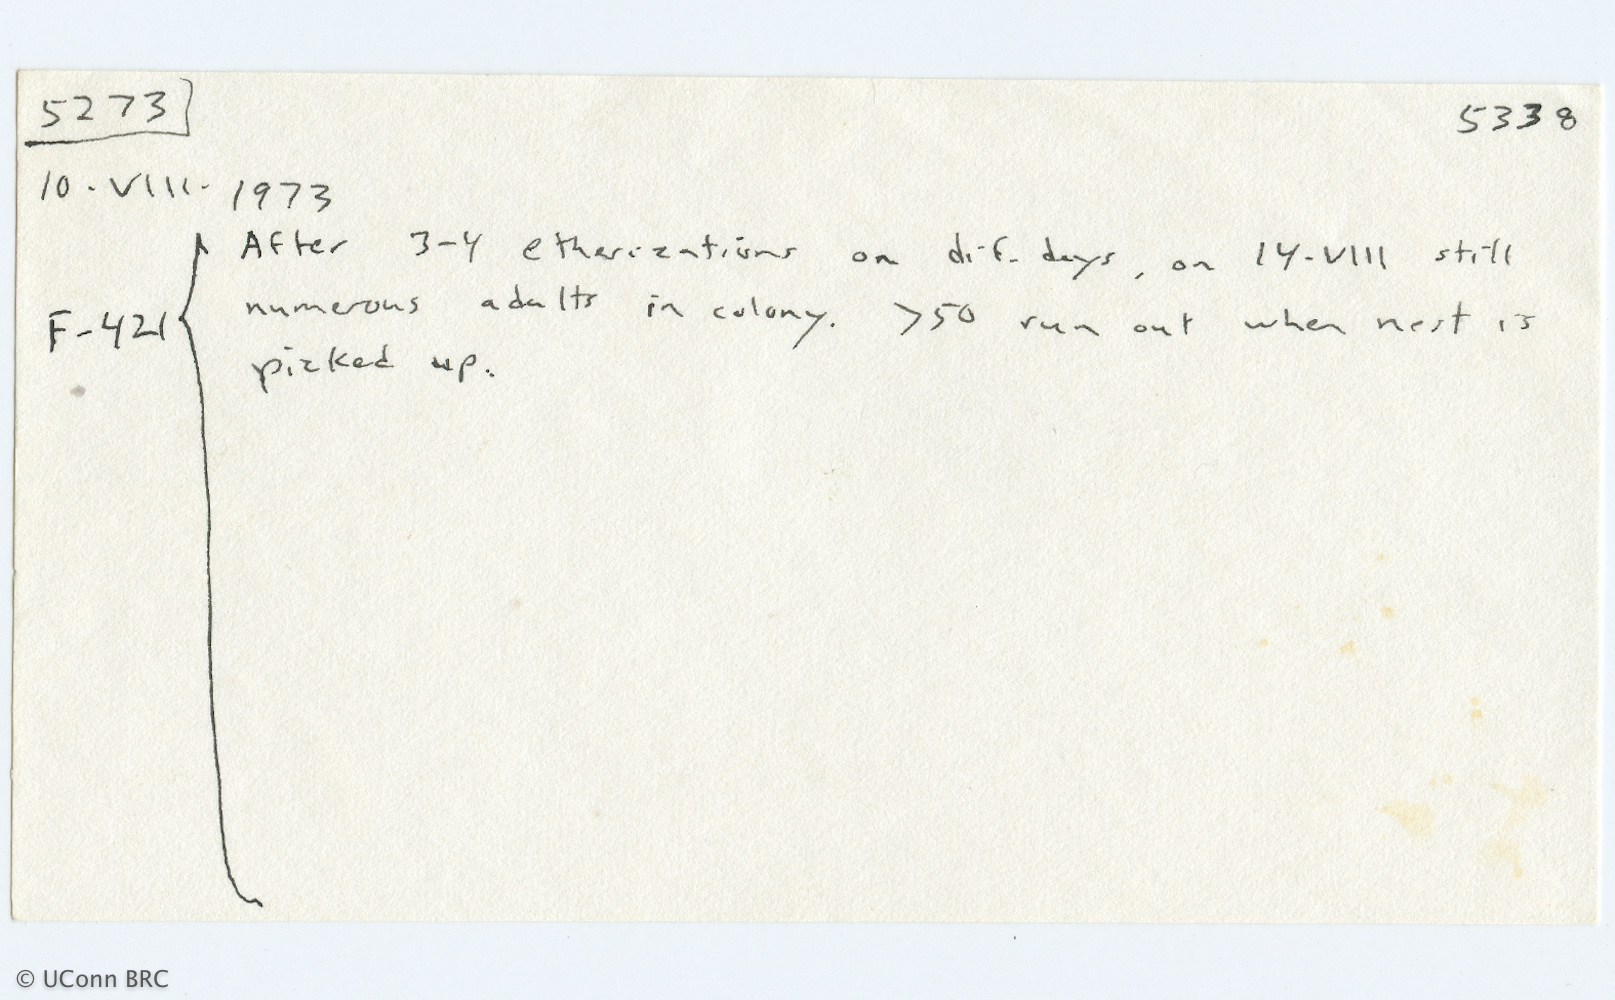 5273
5338
10-VIII-1973
After 3-4 etherizations on dif. days, on 14-VIII still
F-421
numerous adults in colony. >50 run out when nest is
picked up.
© UConn BRC